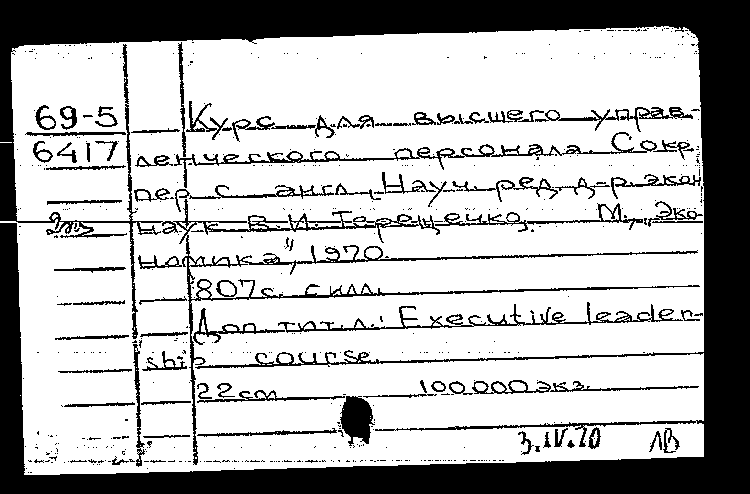 69-5
6417
2 экз
Курс для высшего управ-
ленческого персонала. Сокр.
пер. с англ. Науч. ред. д-р экон.
наук В.И. Терещенко. М., „Эко-
номика", 1970.
807с. с илл.
Доп. тит. л.: Executive leader-
ship course.
22 см 100.000 экз.
3.IV.70 ЛВ